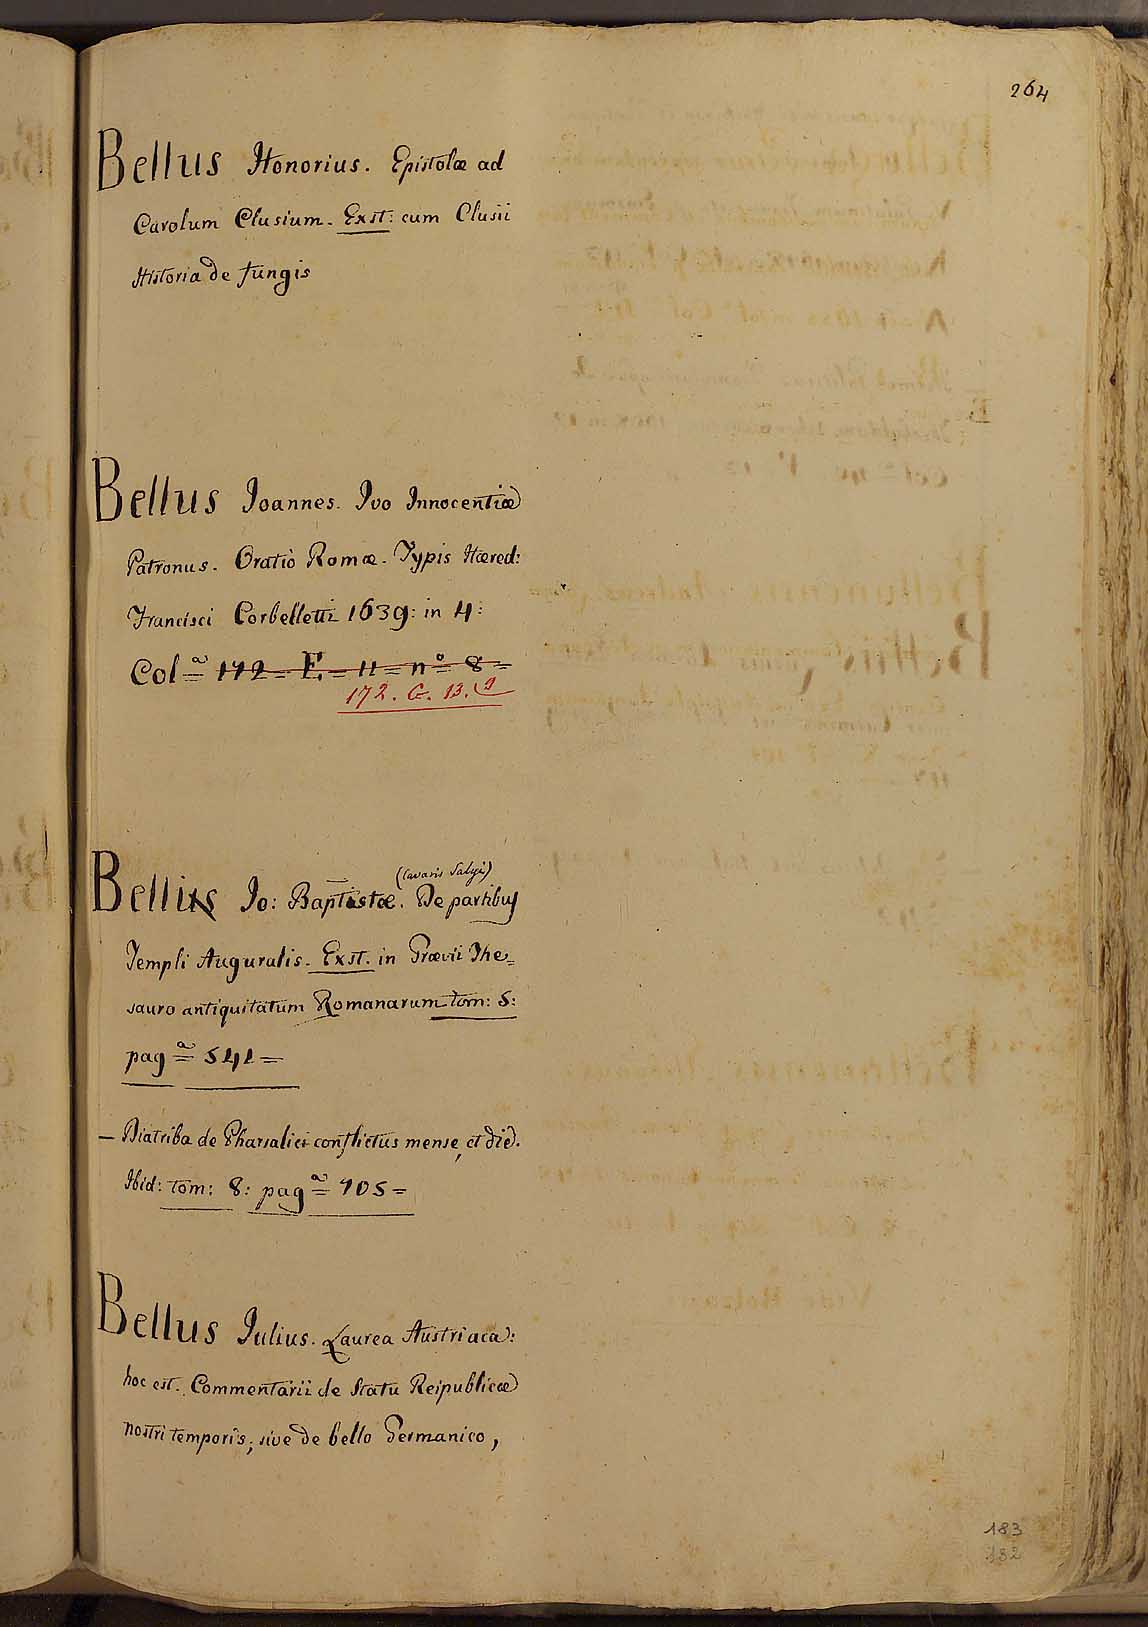 264
Bellus Honorius. Epistolæ ad
Carolum Clusium. Exst: cum Clusii
Historia de fungis
Bellus Joannes. Ivo Innocentiæ
Patronus. Oratio Romæ. Typis Hæred:
Francisci Corbelletti 1639: in 4:
Colª 172 = E = 11 = nº 8 =
172. G. 13. 9
(Cavaris Salyi)
Bellus Jo: Baptistæ. De partibus
Templi Auguralis. Exst. in Grævii The=
sauro antiquitatum Romanarum tom: 5:
pagª 541 =
— Diatriba de Pharsalici conflictus mense, et die.
Ibid: tom: 8: pagª 705 =
Bellus Julius. Laurea Austriaca:
hoc est. Commentarii de Statu Reipublicæ
nostri temporis; sive de bello Germanico,
183
132